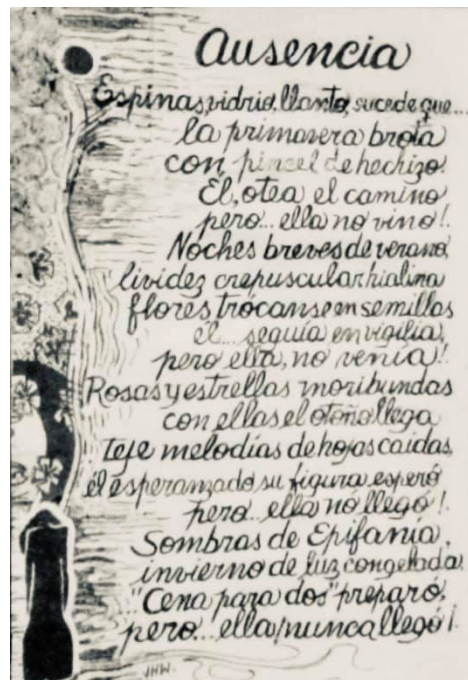 Ausencia
Espinas, vidrio, llanto, sucede que...
la primavera brota
con pincel de hechizo.
Él, otea el camino
pero... ella no vino!.
Noches breves de verano,
lividez crepuscular hialina
flores, trócanse en semillas
él... seguía en vigilia,
pero ella, no venía!.
Rosas y estrellas moribundas
con ellas el otoño llega
Teje melodías de hojas caídas,
él esperanzado su figura esperó
pero.. ella no llegó!.
Sombras de Epifanía,
invierno de luz congelada.
"Cena para dos" preparó,
pero... ella ¡nunca llegó!.
JHW.